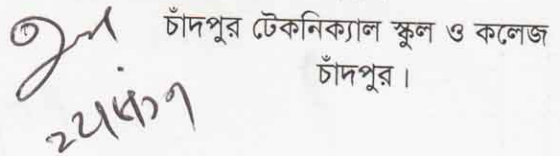 চাঁদপুর টেকনিক্যাল স্কুল ও কলেজ
চাঁদপুর।